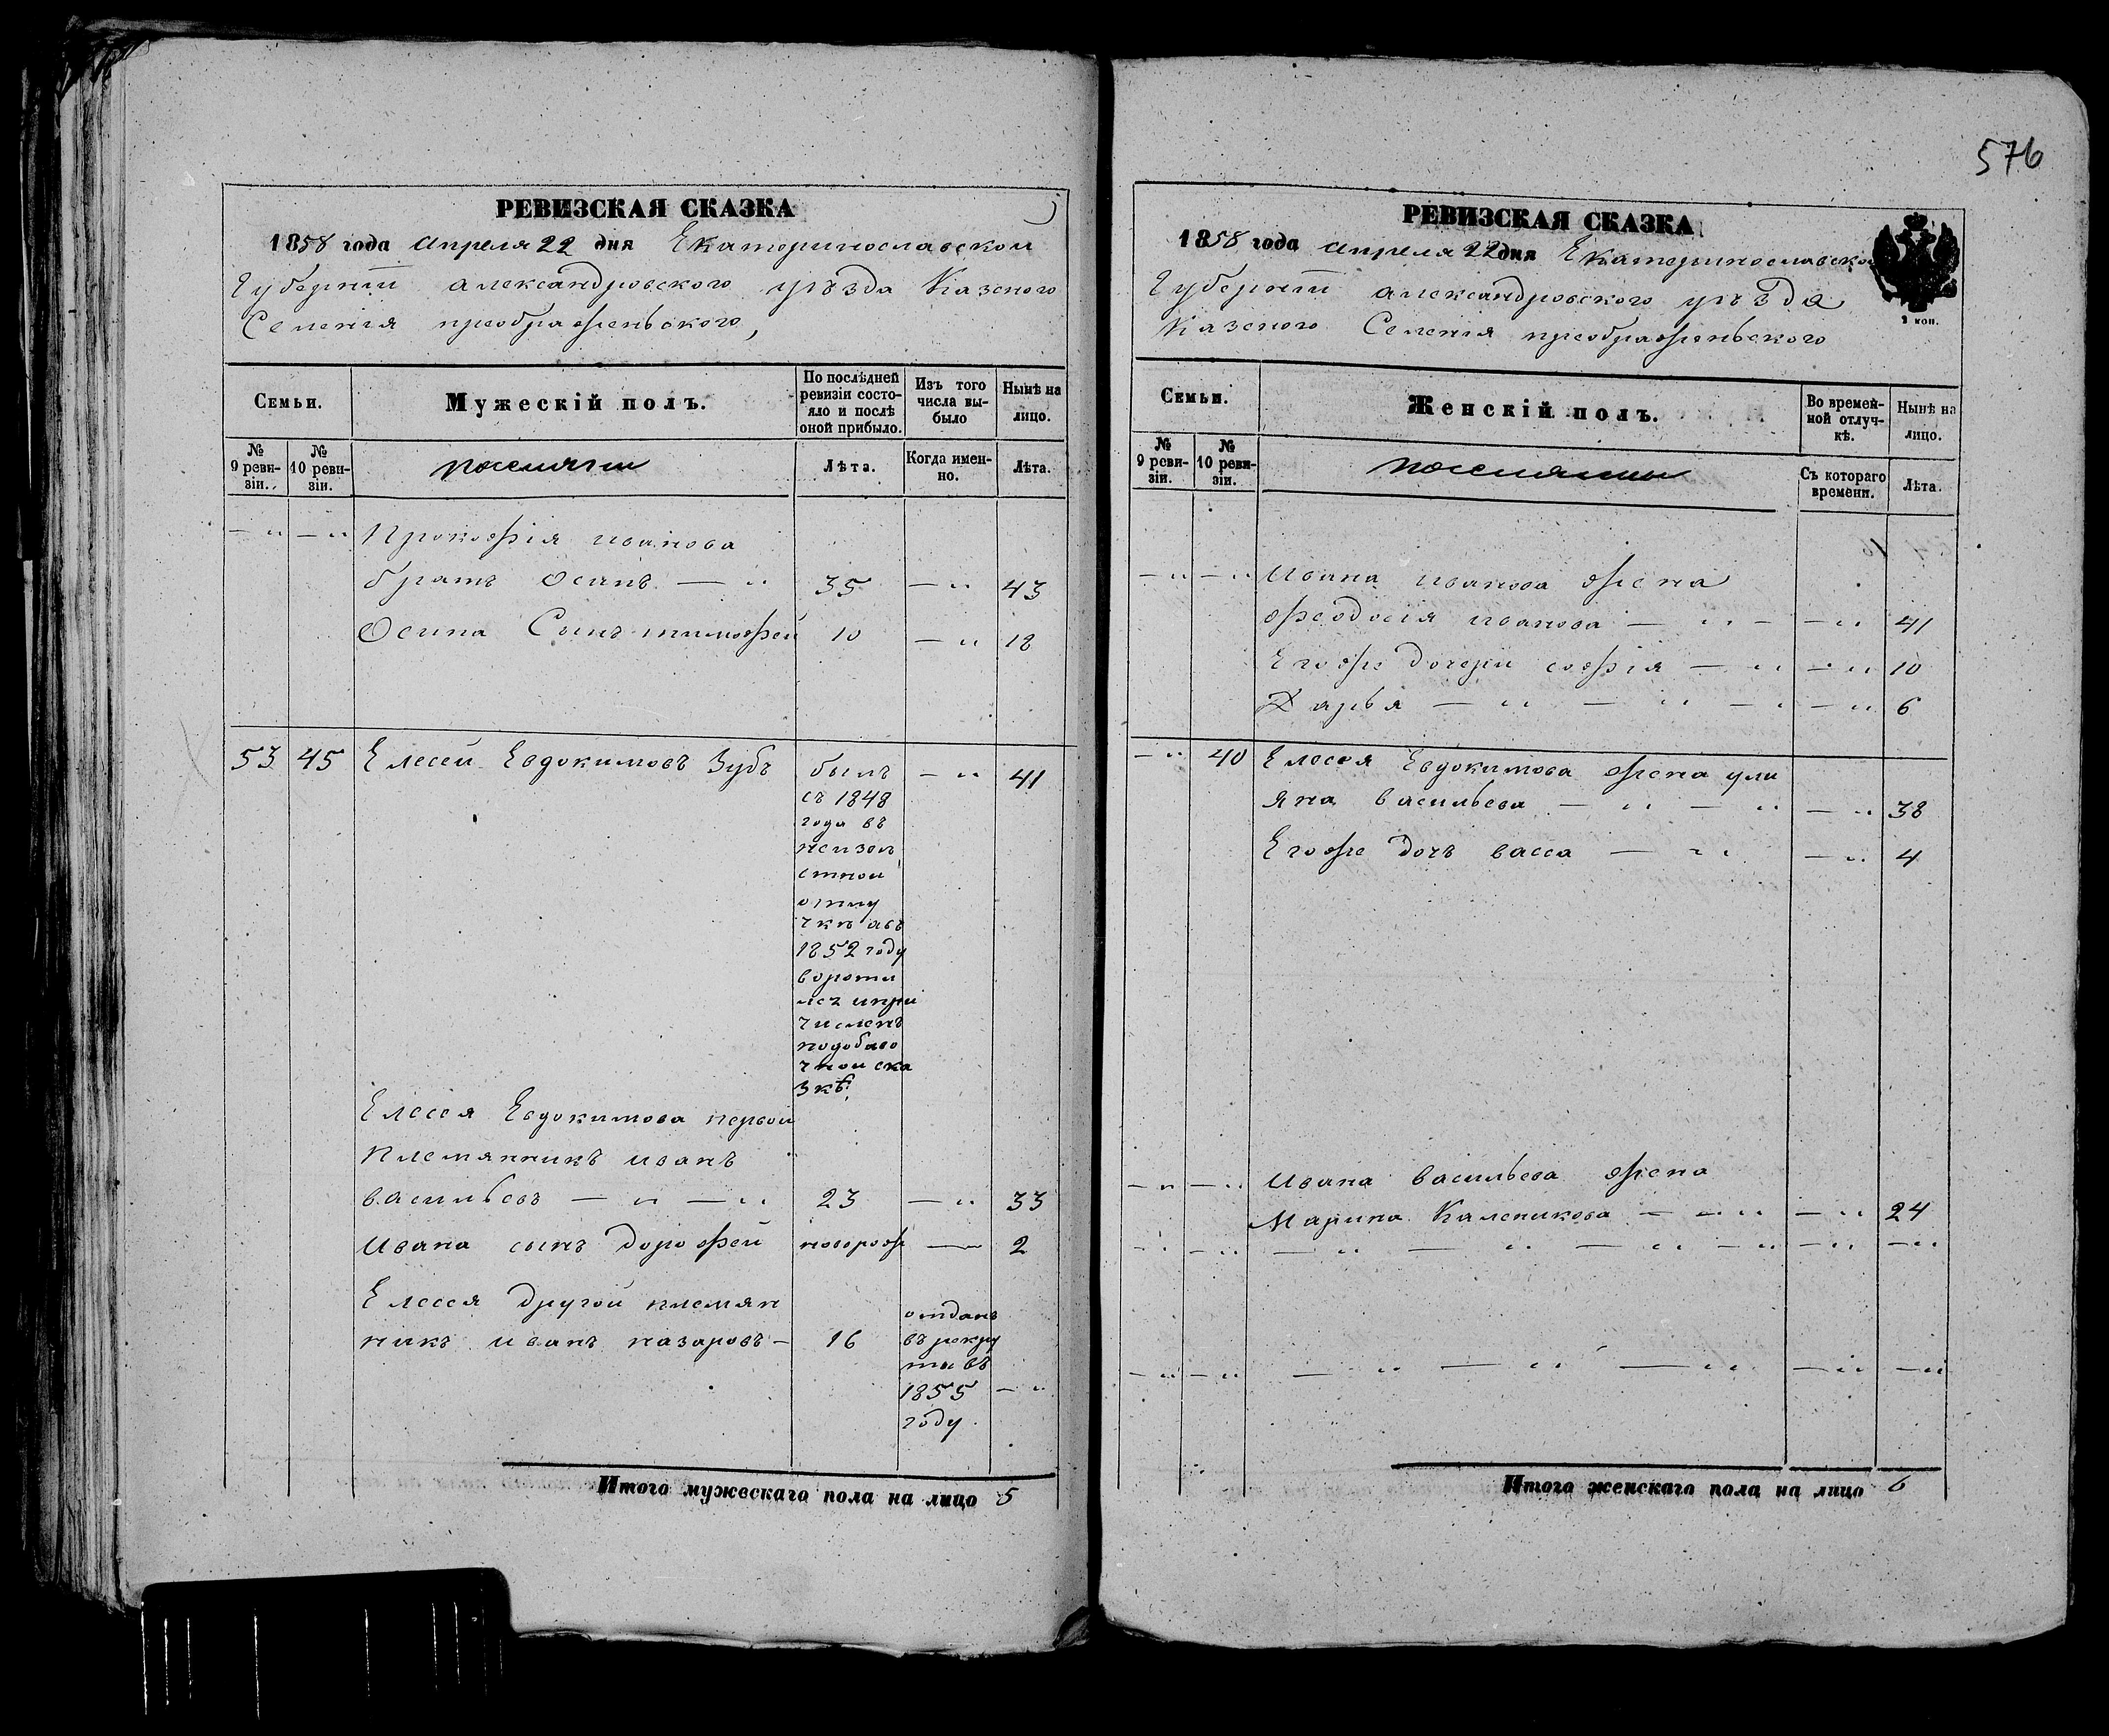 576
РЕВИЗСКАЯ СКАЗКА
1858 года апреля 22 дня Екатеринославской
Губернии александровского уъзда Казеного
Селения преображеньского,
Семьи.
Мужескій полъ.
По послѣдней ревизіи состояло и послѣ оной прибыло.
Изъ того числа выбыло
Нынѣ на лицо.
№ 9 ревизіи.
№ 10 ревизіи.
поселяни
Лѣта.
Когда именно.
Лѣта.
— " — " Прокофія иванова
братъ Осипъ — " 35 — " 43
Осипа Сынъ тимофей 10 — " 18
53 45 Елесей Евдокимовъ Зубъ — " 41
былъ
съ 1848
года въ
неизвѣ
стной
отлу
чкѣ авъ
1852 году
вороти
лсъ ипри
численъ
подобаво
чной ска
зкѣ.
Елесея Евдокимова первой
племянникъ иванъ
васильевъ — " — " 23 — " 33
Ивана сынъ дорофей новорож — 2
Елесея другой племян
никъ иванъ назаровъ — 16
отданъ
въ рекру
ты въ
1855 — "
году.
Итого мужескаго пола на лицо 5
РЕВИЗСКАЯ СКАЗКА
1858 года апреля 22 дня Екатеринославской
Губернии александровского уъзда
Казеного Селения преображеньского
2 коп.
Семьи.
Женскій полъ.
Во временной отлучкѣ.
Нынѣ на лицо.
№ 9 ревизіи.
№ 10 ревизіи.
поселянки
Съ котораго времени.
Лѣта.
— " — " Ивана иванова жена
феодосія иванова — " — — " 41
Егоже дочери софія — " — " 10
Дарья — " — " — " — " 6
— " 40 Елесея Евдокимова жена ули
яна васильева — " — " — " 38
Егоже дочъ васса — " — " 4
— " — " Ивана васильева жена
Марина Каленикова — " — " 24
— " — " — " — " — " — " — " — "
— " — " — " — " — " — " — "
Итого женскаго пола на лицо 6